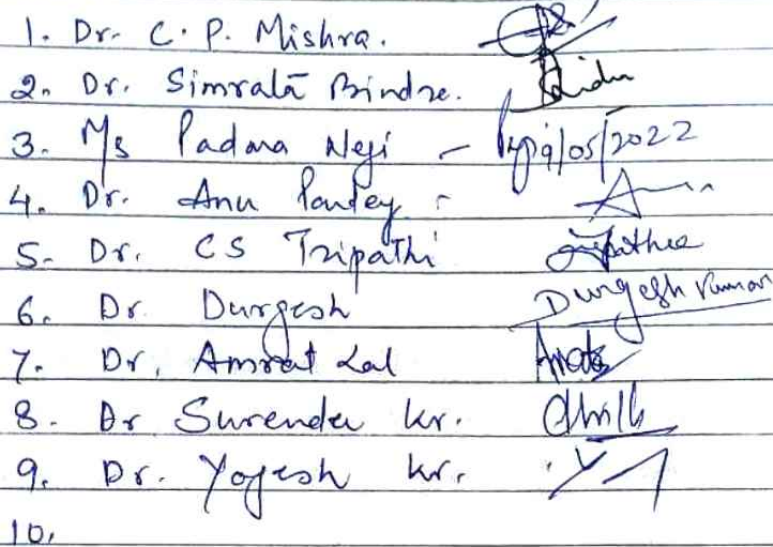 1. Dr. C. P. Mishra.
2. Dr. Simratā Bindre.
3. Ms Padma Negi - 19/05/2022
4. Dr. Anu Pandey -
5. Dr. CS Tripathi
6. Dr. Durgesh Durgesh Kumar
7. Dr. Amrat Lal
8. Dr Surender Kr.
9. Dr. Yogesh Kr.
10.